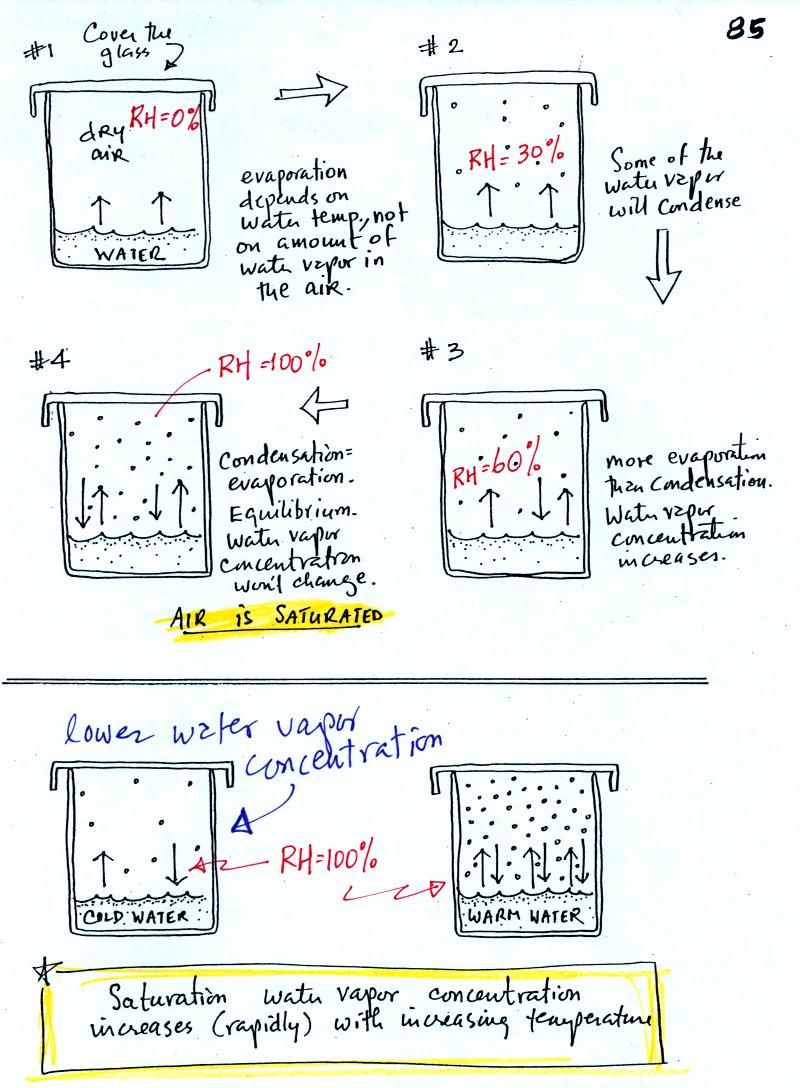 85
#1
Cover the
glass
RH=0%
dry
air
WATER
evaporation
depends on
water temp., not
on amount of
water vapor in
the air.
#2
RH=30%
Some of the
water vapor
will condense
#3
RH=60%
more evaporation
than condensation.
Water vapor
concentration
increases.
#4
RH=100%
Condensation=
evaporation.
Equilibrium.
Water vapor
concentration
won't change.
AIR is SATURATED
lower water vapor
concentration
RH=100%
COLD WATER
WARM WATER
Saturation water vapor concentration
increases (rapidly) with increasing temperature